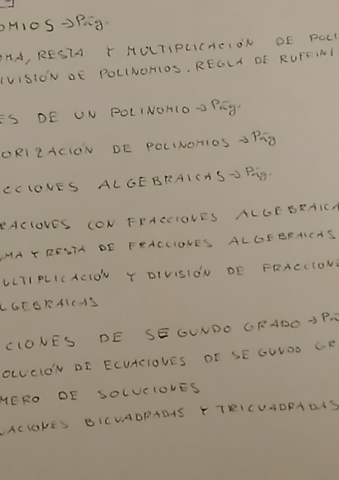 OMIOS → Pág.
OMA, RESTA Y MULTIPLICACIÓN DE POLI
DIVISIÓN DE POLINOMIOS. REGLA DE RUFFINI
ES DE UN POLINOMIO → Pág.
ORIZACIÓN DE POLINOMIOS → Pág
CCIONES ALGEBRAICAS → Pág.
RACIONES CON FRACCIONES ALGEBRAICA
MA Y RESTA DE FRACCIONES ALGEBRAICAS
ULTIPLICACIÓN Y DIVISIÓN DE FRACCION
LGEBRAICAS
CIONES DE SEGUNDO GRADO → Pá
OLUCIÓN DE ECUACIONES DE SEGUNDO GR
MERO DE SOLUCIONES
UACIONES BICUADRADAS Y TRICUADRADAS